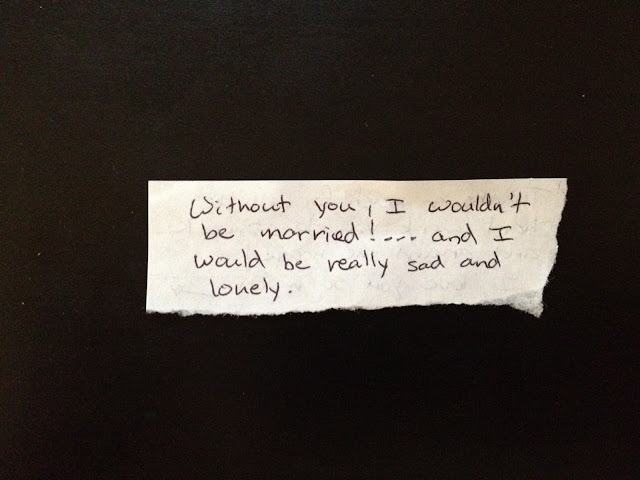 Without you, I wouldn't
be married!... and I
would be really sad and
lonely.